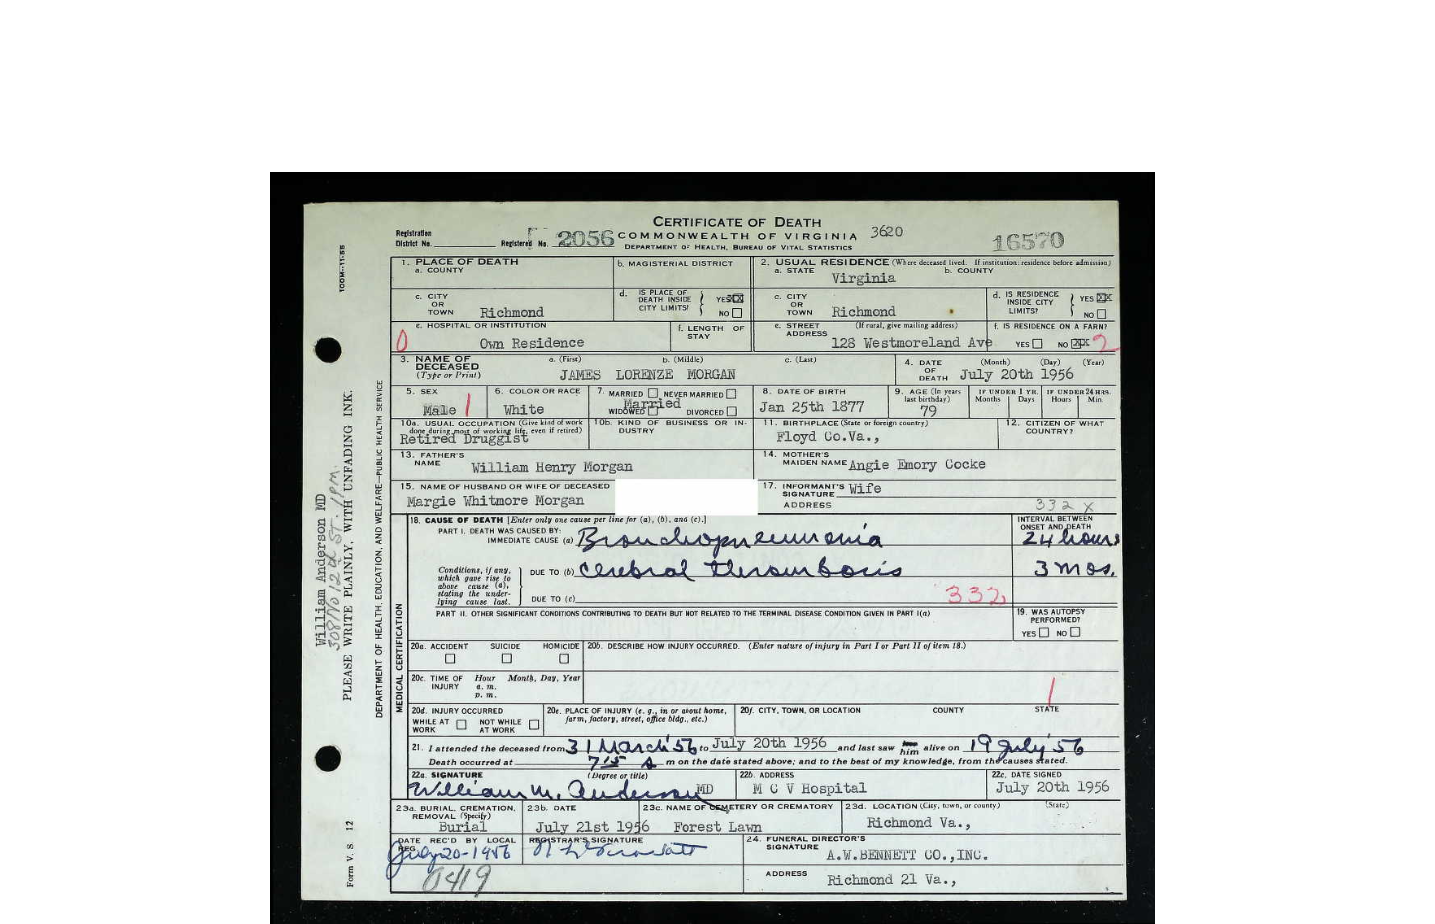 CERTIFICATE OF DEATH
COMMONWEALTH OF VIRGINIA 3620
DEPARTMENT OF HEALTH, BUREAU OF VITAL STATISTICS
Registration
District No. Registered No. 2056
16570
1. PLACE OF DEATH
a. COUNTY
b. MAGISTERIAL DISTRICT
2. USUAL RESIDENCE (Where deceased lived. If institution: residence before admission)
a. STATE Virginia b. COUNTY
c. CITY OR TOWN Richmond
d. IS PLACE OF DEATH INSIDE CITY LIMITS? YES XX NO
c. CITY OR TOWN Richmond
d. IS RESIDENCE INSIDE CITY LIMITS? YES XX NO
e. HOSPITAL OR INSTITUTION
0 Own Residence
f. LENGTH OF STAY
e. STREET ADDRESS (If rural, give mailing address)
128 Westmoreland Ave
f. IS RESIDENCE ON A FARM?
YES NO XX 2
3. NAME OF DECEASED (Type or Print)
a. (First) b. (Middle) c. (Last)
JAMES LORENZE MORGAN
4. DATE OF DEATH (Month) (Day) (Year)
July 20th 1956
5. SEX
Male 1
6. COLOR OR RACE
White
7. MARRIED NEVER MARRIED
Married
WIDOWED DIVORCED
8. DATE OF BIRTH
Jan 25th 1877
9. AGE (In years last birthday)
79
IF UNDER 1 YR. Months Days
IF UNDER 24 HRS. Hours Min.
10a. USUAL OCCUPATION (Give kind of work done during most of working life, even if retired)
Retired Druggist
10b. KIND OF BUSINESS OR INDUSTRY
11. BIRTHPLACE (State or foreign country)
Floyd Co.Va.,
12. CITIZEN OF WHAT COUNTRY?
13. FATHER'S NAME William Henry Morgan
14. MOTHER'S MAIDEN NAME Angie Emory Cocke
15. NAME OF HUSBAND OR WIFE OF DECEASED
Margie Whitmore Morgan
17. INFORMANT'S SIGNATURE Wife
ADDRESS
332 X
18. CAUSE OF DEATH [Enter only one cause per line for (a), (b), and (c).]
INTERVAL BETWEEN ONSET AND DEATH
PART I. DEATH WAS CAUSED BY:
IMMEDIATE CAUSE (a) Bronchopneumonia 24 hours
Conditions, if any, which gave rise to above cause (a), stating the underlying cause last.
DUE TO (b) Cerebral thrombosis 3 mos.
DUE TO (c) 332
PART II. OTHER SIGNIFICANT CONDITIONS CONTRIBUTING TO DEATH BUT NOT RELATED TO THE TERMINAL DISEASE CONDITION GIVEN IN PART I(a)
19. WAS AUTOPSY PERFORMED?
YES NO
20a. ACCIDENT SUICIDE HOMICIDE
20b. DESCRIBE HOW INJURY OCCURRED. (Enter nature of injury in Part I or Part II of item 18.)
20c. TIME OF INJURY Hour Month, Day, Year
a. m.
p. m.
1
20d. INJURY OCCURRED
WHILE AT WORK NOT WHILE AT WORK
20e. PLACE OF INJURY (e. g., in or about home, farm, factory, street, office bldg., etc.)
20f. CITY, TOWN, OR LOCATION COUNTY STATE
21. I attended the deceased from 31 March '56 to July 20th 1956 and last saw him alive on 19 July '56
Death occurred at 7 15 A m on the date stated above; and to the best of my knowledge, from the causes stated.
22a. SIGNATURE (Degree or title)
William M. Anderson MD
22b. ADDRESS
M C V Hospital
22c. DATE SIGNED
July 20th 1956
23a. BURIAL, CREMATION, REMOVAL (Specify)
Burial
23b. DATE
July 21st 1956
23c. NAME OF CEMETERY OR CREMATORY
Forest Lawn
23d. LOCATION (City, town, or county) (State)
Richmond Va.,
DATE REC'D BY LOCAL REG.
July 20-1956
REGISTRAR'S SIGNATURE
24. FUNERAL DIRECTOR'S SIGNATURE
A.W.BENNETT CO.,INC.
ADDRESS Richmond 21 Va.,
0419
100M-11-55
William Anderson MD
308 No 12th ST. 1 PM.
PLEASE WRITE PLAINLY, WITH UNFADING INK.
DEPARTMENT OF HEALTH, EDUCATION, AND WELFARE—PUBLIC HEALTH SERVICE
MEDICAL CERTIFICATION
Form V. S. 12